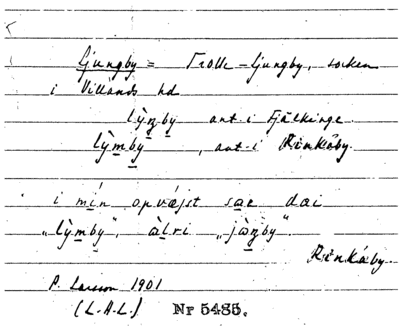 Ljungby = Trolle-Ljungby, socken
i Villands hd
lỳŋby ant. i Fjälkinge.
lỳmby , ant. i Rinkaby.
i mín opväjst sae dai
"lỳmby", àlri "jàŋby".
Rinkaby.
P. Larsson 1901
(L.A.L.) Nr 5485.